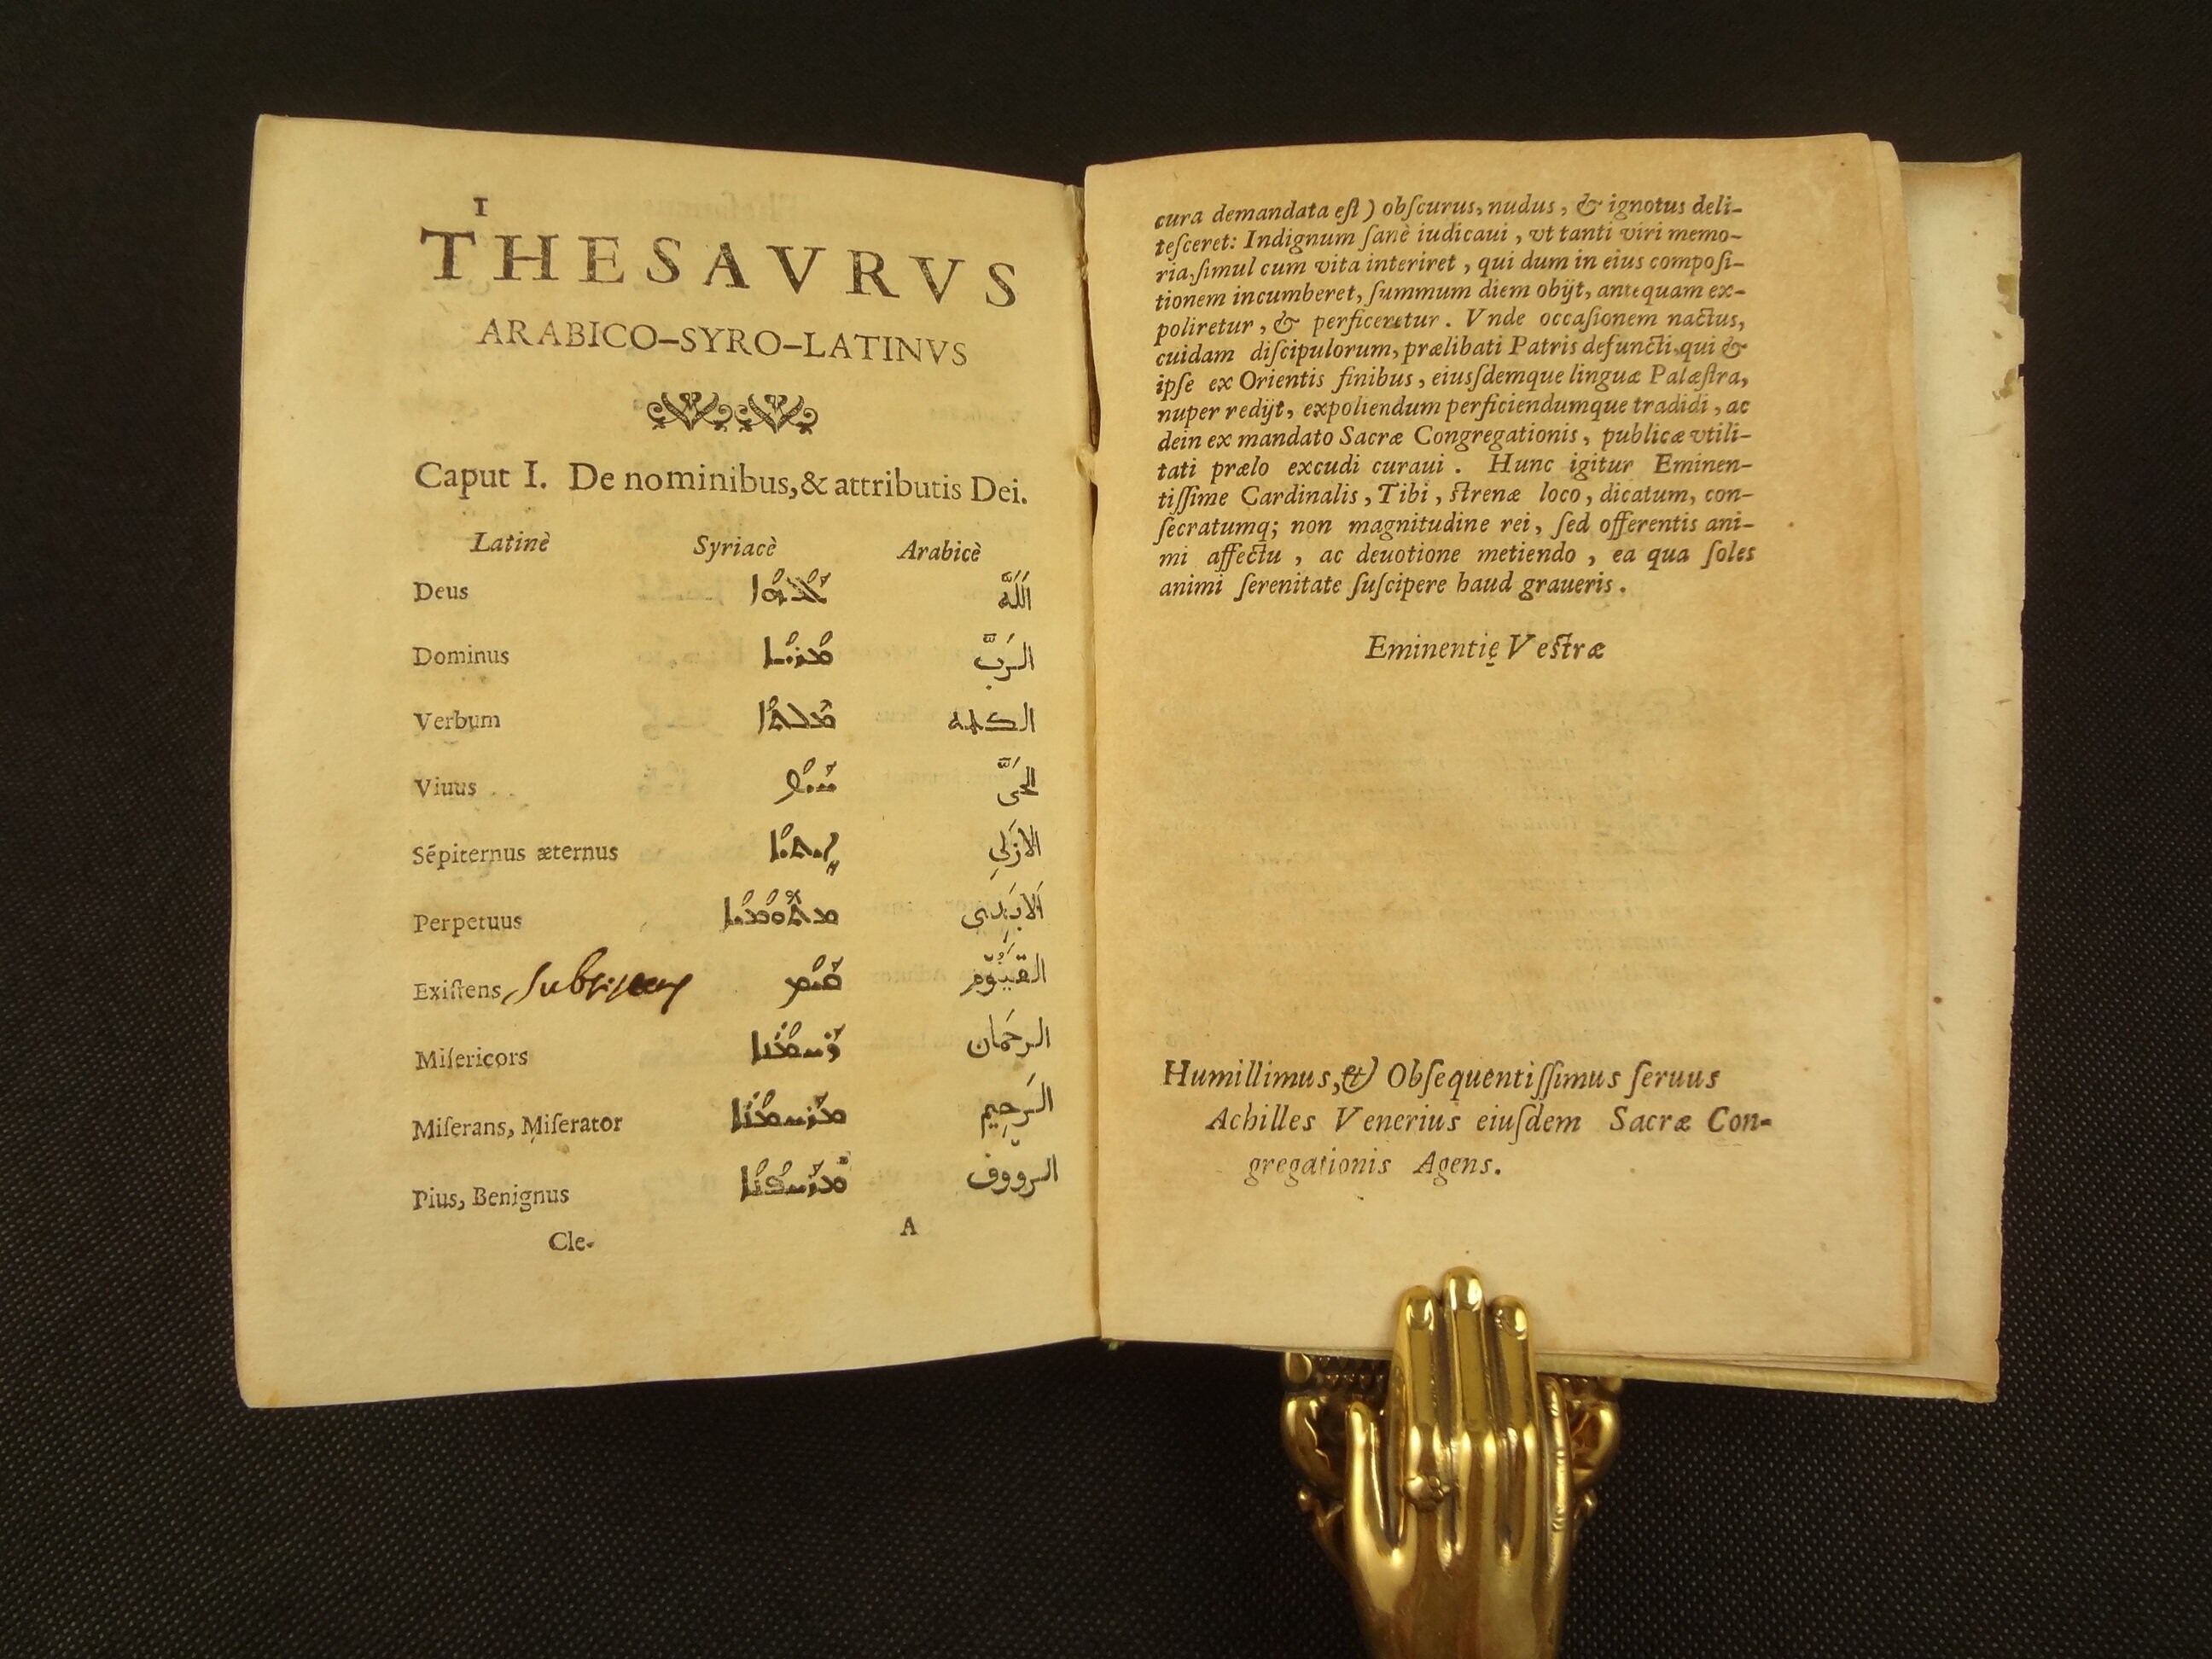 1
THESAVRVS
ARABICO-SYRO-LATINVS
Caput I. De nominibus, & attributis Dei.
Latinè Syriacè Arabicè
Deus ܐܰܠܳܗܳܐ اَللَّه
Dominus ܡܳܪܝܳܐ الرَبَّ
Verbum ܡܶܠܬܳܐ الكلمه
Viuus ܚܰܝܳܐ الحَىَّ
Sẽpiternus æternus ܐܝܬܝܐ الازَلِي
Perpetuus الاَبَدِىِ
Existens, القَيُّوم
Miſericors ܪܰܚܡܳܢܳܐ الرحَمان
Miſerans, Miſerator ܡܪܰܚܡܳܢܳܐ الرَحِيم
Pius, Benignus ܡܪܰܚܦܳܢܳܐ الرووف
Cle- A
cura demandata eſt ) obſcurus, nudus, & ignotus deli-
teſceret: Indignum ſanè iudicaui, vt tanti viri memo-
ria, ſimul cum vita interiret, qui dum in eius compoſi-
tionem incumberet, ſummum diem obijt, antequam ex-
poliretur, & perficeretur. Vnde occaſionem nactus,
cuidam diſcipulorum, prælibati Patris defuncti, qui &
ipſe ex Orientis finibus, eiuſdemque linguæ Palæſtra,
nuper redijt, expoliendum perficiendumque tradidi, ac
dein ex mandato Sacræ Congregationis, publicæ vtili-
tati prælo excudi curaui. Hunc igitur Eminen-
tiſſime Cardinalis, Tibi, ſtrenæ loco, dicatum, con-
ſecratumq; non magnitudine rei, ſed offerentis ani-
mi affectu, ac deuotione metiendo, ea qua ſoles
animi ſerenitate ſuſcipere haud graueris.
Eminentię Veſtræ
Humillimus, & Obſequentiſſimus ſeruus
Achilles Venerius eiuſdem Sacræ Con-
gregationis Agens.